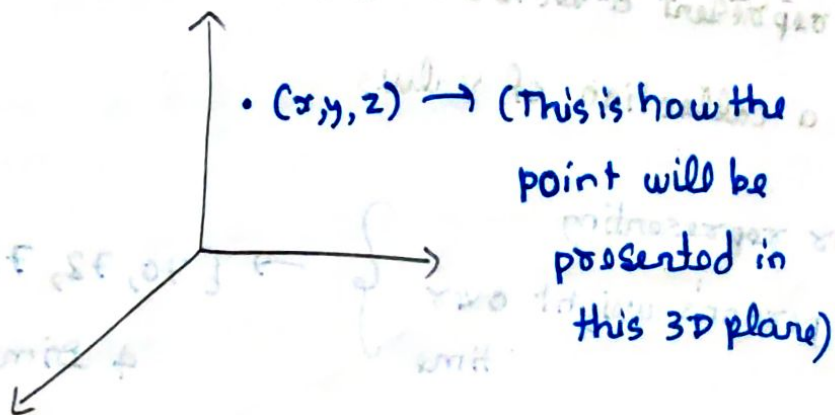 • (x,y,z) → (This is how the
point will be
presented in
this 3D plane)